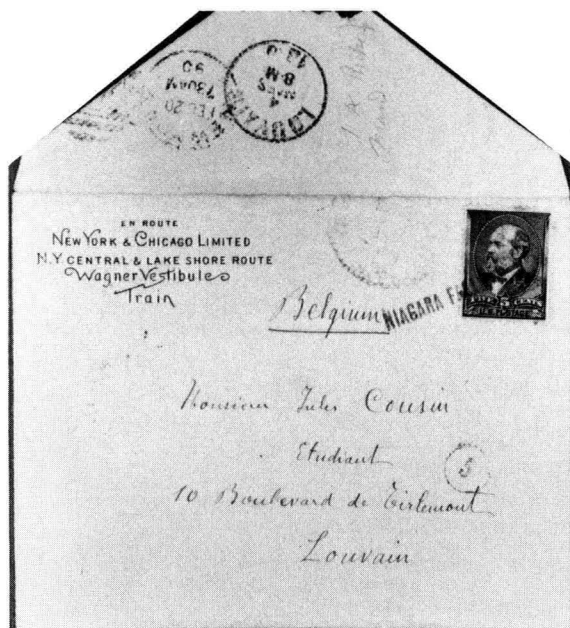 LOUVAIN
4
MARS
8-M
NEW
FEB 20
730AM
90
EN ROUTE
NEW YORK & CHICAGO LIMITED
N.Y. CENTRAL & LAKE SHORE ROUTE
Wagner Vestibule
Train
Belgium
NIAGARA
U.S. POSTAGE
Monsieur Jules Cousin
Etudiant
5
10 Boulevard de Tirlemont
Louvain